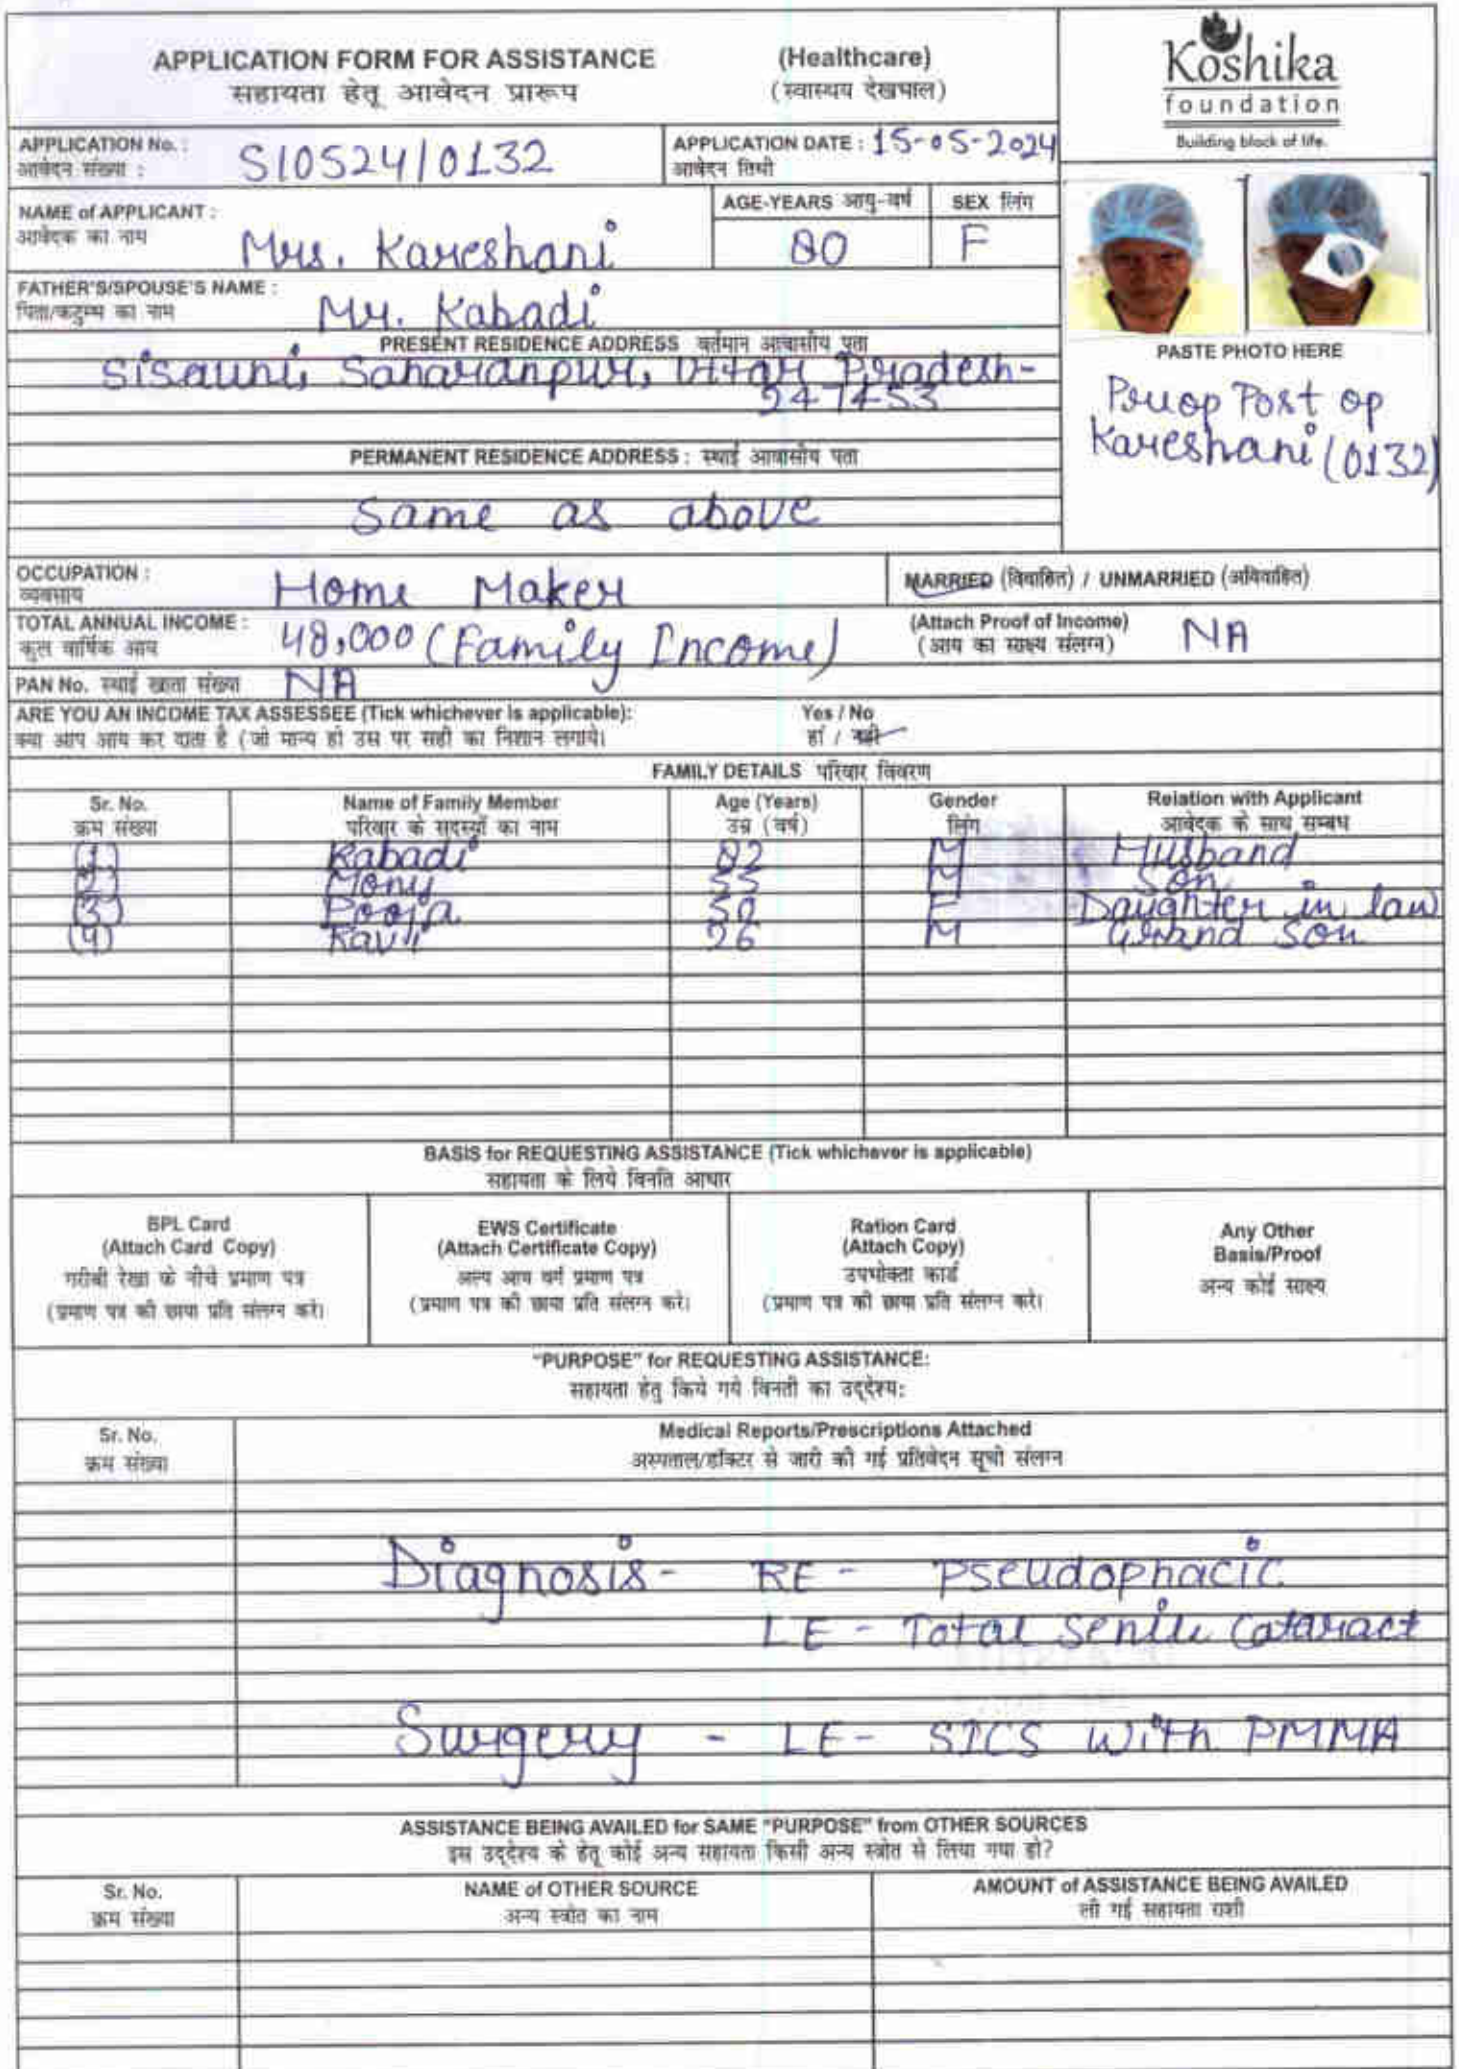 APPLICATION FORM FOR ASSISTANCE (Healthcare)
सहायता हेतू आवेदन प्रारूप (स्वास्थय देखभाल)
Koshika
foundation
Building block of life.
APPLICATION No. : S10524/0132 APPLICATION DATE : 15-05-2024
आवेदन संख्या : आवेदन तिथी
NAME of APPLICANT : Mrs. Kareshani AGE-YEARS आयु-वर्ष 80 SEX लिंग F
आवेदक का नाम
FATHER'S/SPOUSE'S NAME : Mr. Kabadi
पिता/कटुम्ब का नाम
PRESENT RESIDENCE ADDRESS वर्तमान आवासीय पता
Sisauni, Saharanpur, Uttar Pradesh-
247453
PASTE PHOTO HERE
Preop Post op
Kareshani (0132)
PERMANENT RESIDENCE ADDRESS : स्थाई आवासीय पता
Same as above
OCCUPATION : Home Maker MARRIED (विवाहित) / UNMARRIED (अविवाहित)
व्यवसाय
TOTAL ANNUAL INCOME : 48,000 (Family Income) (Attach Proof of Income) NA
कुल वार्षिक आय (आय का साक्ष्य संलग्न)
PAN No. स्थाई खाता संख्या NA
ARE YOU AN INCOME TAX ASSESSEE (Tick whichever is applicable): Yes / No
क्या आप आय कर दाता है (जो मान्य हो उस पर सही का निशान लगाये। हां / नहीं
FAMILY DETAILS परिवार विवरण
Sr. No. Name of Family Member Age (Years) Gender Relation with Applicant
क्रम संख्या परिवार के सदस्यों का नाम उम्र (वर्ष) लिंग आवेदक के साथ सम्बध
(1) Kabadi 82 M Husband
(2) Mony 55 M Son
(3) Pooja 50 F Daughter in law
(4) Ravi 26 M Grand Son
BASIS for REQUESTING ASSISTANCE (Tick whichever is applicable)
सहायता के लिये विनति आधार
BPL Card
(Attach Card Copy)
गरीबी रेखा के नीचे प्रमाण पत्र
(प्रमाण पत्र की छाया प्रति संलग्न करे।
EWS Certificate
(Attach Certificate Copy)
अल्प आय वर्ग प्रमाण पत्र
(प्रमाण पत्र की छाया प्रति संलग्न करे।
Ration Card
(Attach Copy)
उपभोक्ता कार्ड
(प्रमाण पत्र की छाया प्रति संलग्न करे।
Any Other
Basis/Proof
अन्य कोई साक्ष्य
"PURPOSE" for REQUESTING ASSISTANCE:
सहायता हेतु किये गये विनती का उद्देश्य:
Sr. No. Medical Reports/Prescriptions Attached
क्रम संख्या अस्पताल/डॉक्टर से जारी की गई प्रतिवेदन सूची संलग्न
Diagnosis- RE - Pseudophacic
LE - Total Senile Cataract
Surgery - LE- SICS With PMMA
ASSISTANCE BEING AVAILED for SAME "PURPOSE" from OTHER SOURCES
इस उद्देश्य के हेतू कोई अन्य सहायता किसी अन्य स्त्रोत से लिया गया हो?
Sr. No. NAME of OTHER SOURCE AMOUNT of ASSISTANCE BEING AVAILED
क्रम संख्या अन्य स्त्रोत का नाम ली गई सहायता राशी